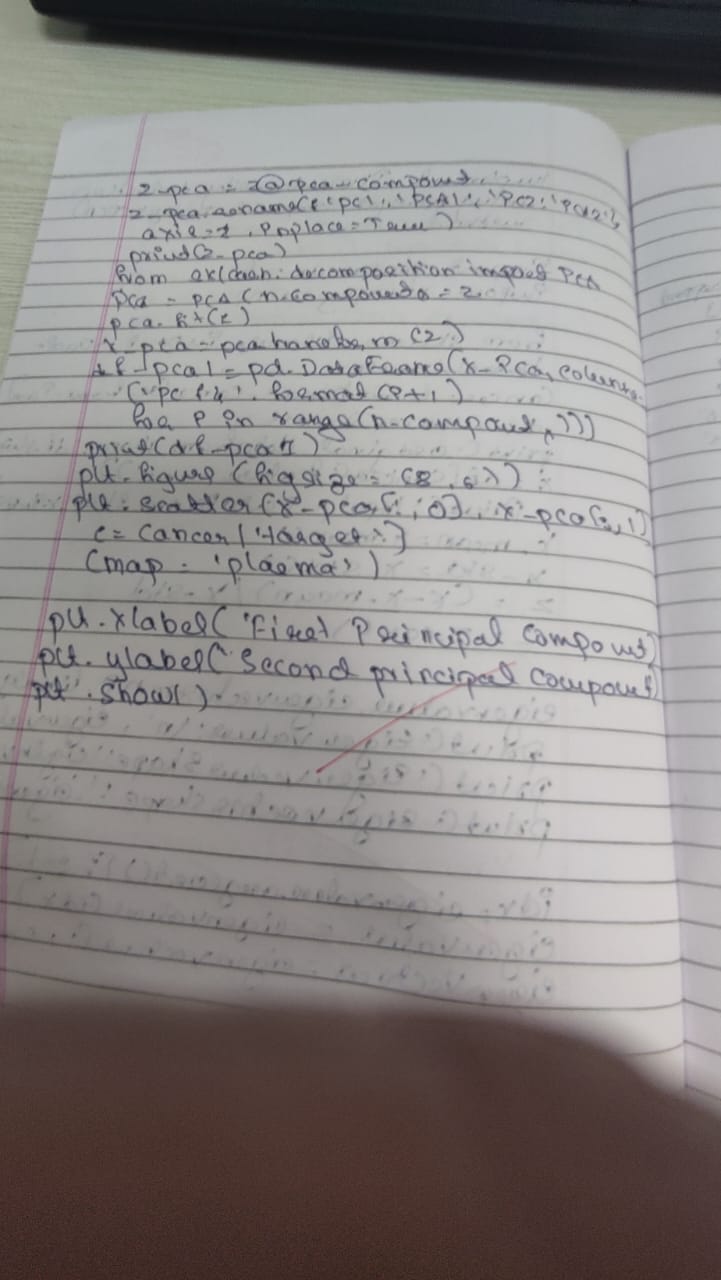 z-pca = z@pca-compount
z-pca.rename({'pc1': 'PCA1', 'PC2': 'PCA2'},
axis=1, inplace=True)
print(z-pca)
from sklearn.decomposition import PCA
pca = PCA(n-components = 2
pca.fit(z)
x-pca = pca.transform(z)
df-pca1 = pd.DataFrame(x-pca, columns
'.format(i+1)
for i in range(n-compount)))
print(df-pca1)
plt.figure(figsize = (8, 6))
plt.scatter(x-pca[:, 0], x-pca[:, 1]
c = cancer['target']
cmap = 'plasma')
plt.xlabel('First Principal compount)
plt.ylabel('Second principal compount)
plt.show()